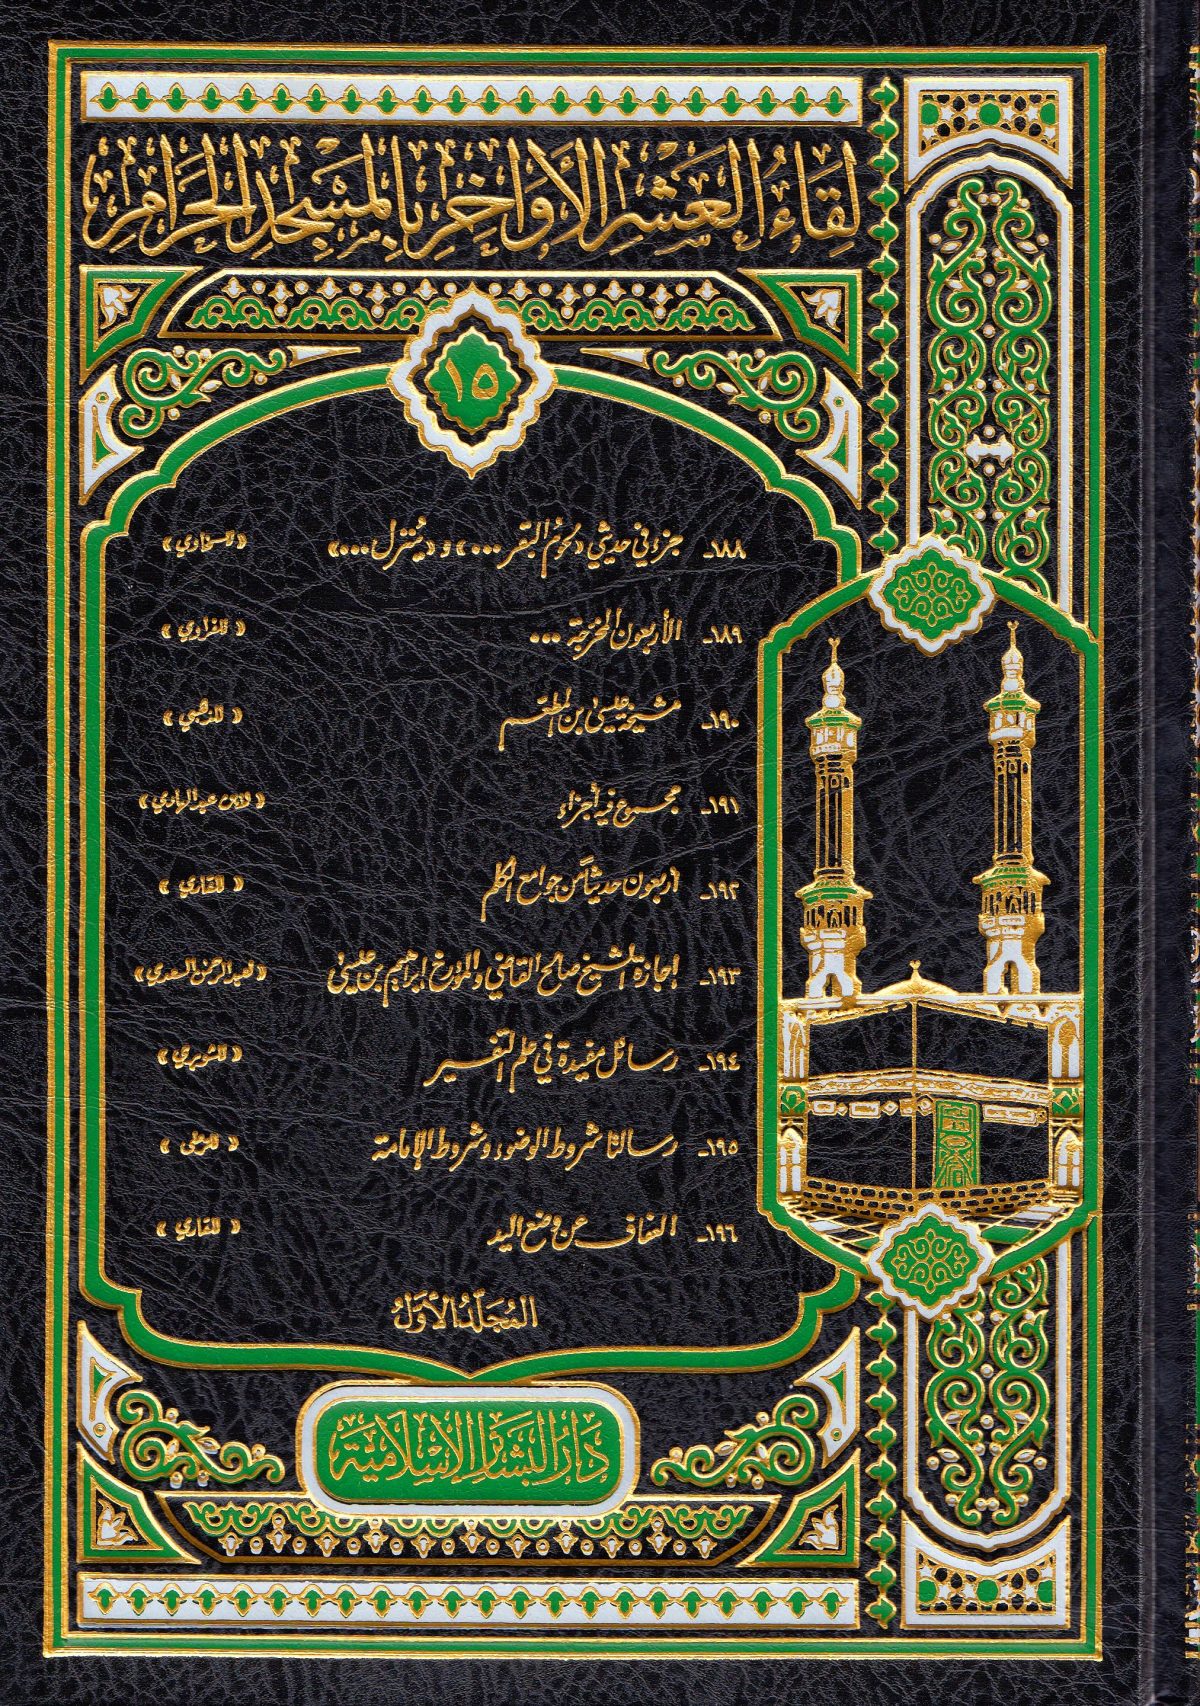 لِقَاءُ العَشْرِ الأَوَاخِرِ بِالمَسْجِدِ الحَرَامِ
١٥
١٨٨ـ جزء في حديثي «لحوم البقر ...» و «يُنزل ...» «للسخاوي»
١٨٩ـ الأربعون المخرجة ... «للفراوي»
١٩٠ـ مشيخة عيسى بن المطعم «للذهبي»
١٩١ـ مجموع فيه أجزاء «لابن عبد الهادي»
١٩٢ـ أربعون حديثاً من جوامع الكلم «للقاري»
١٩٣ـ إجازة الشيخ صالح القاضي والمؤرخ إبراهيم بن عيسى «لعبد الرحمن السعدي»
١٩٤ـ رسائل مفيدة في علم التفسير
١٩٥ـ رسالتا شروط الوضوء وشروط الإمامة «للرملي»
١٩٦ـ العفاف عن وضع اليد «للقاري»
المُجَلَّدُ الأَوَّلُ
دَارُ البَشَائِرِ الإِسْلَامِيَّةِ